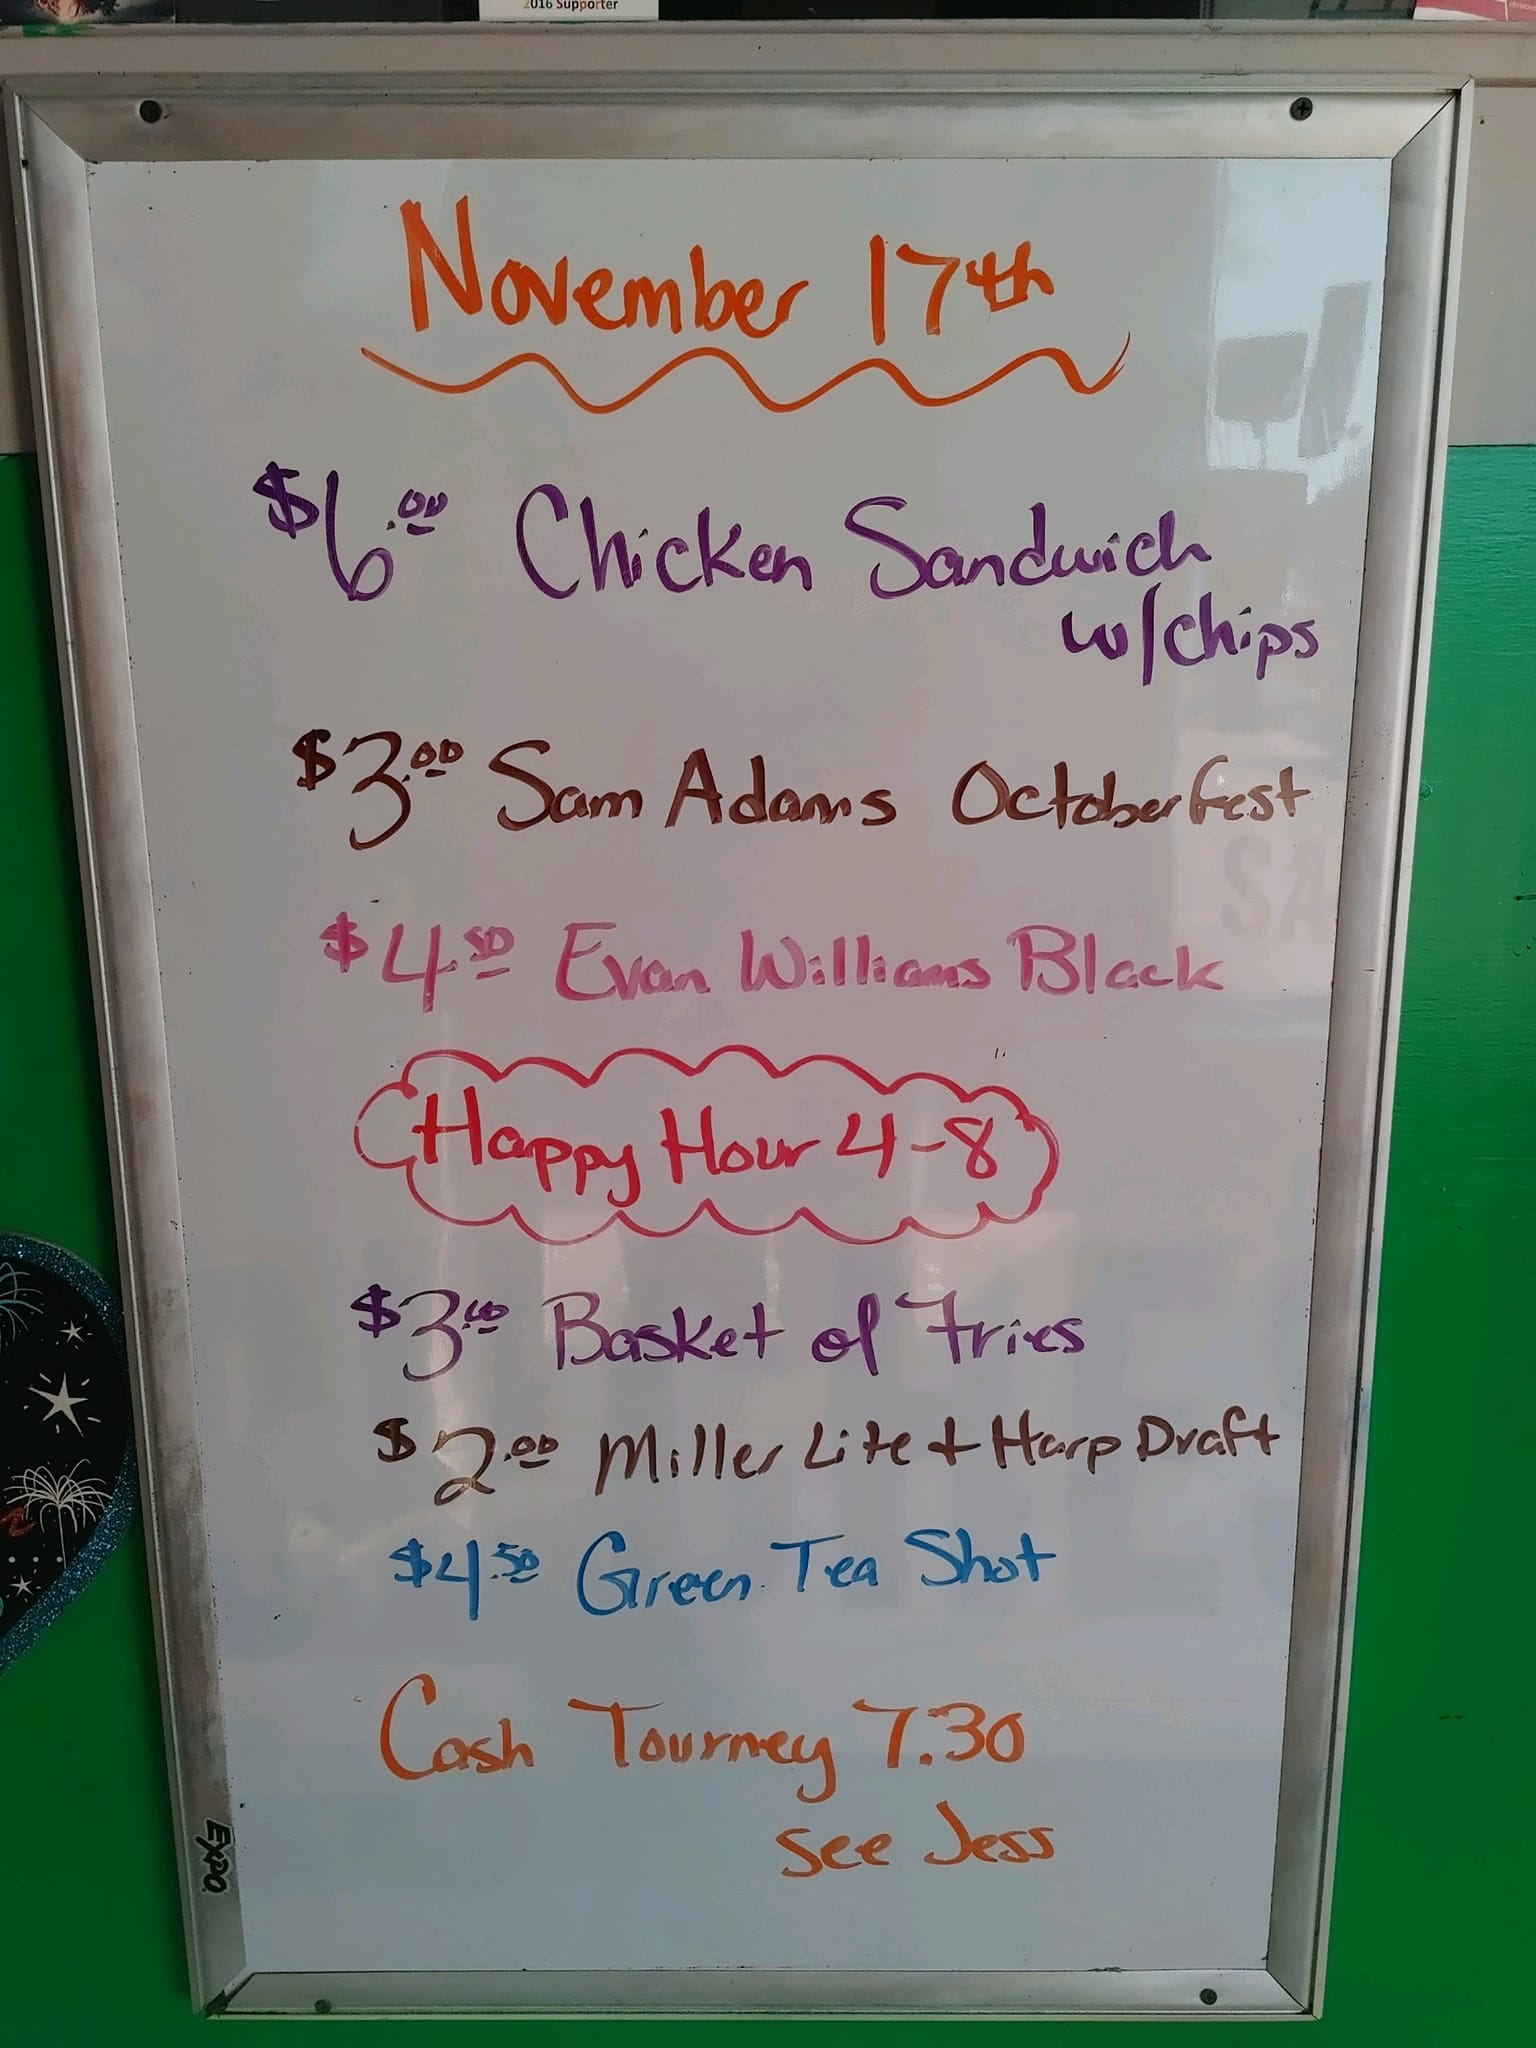 2016 Supporter
November 17th
$6.00 Chicken Sandwich
w/chips
$3.00 Sam Adams Octoberfest
$4.50 Evan Williams Black
Happy Hour 4-8
$3.00 Basket of Fries
$2.00 Miller Lite + Harp Draft
$4.50 Green Tea Shot
Cash Tourney 7:30
see Jess
EXPO